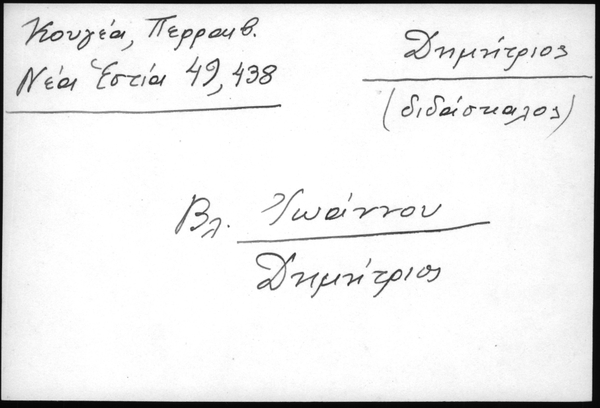 Κουγέα, Περραιβ.
Νέα Ἑστία 49, 438
Δημήτριος
(διδάσκαλος)
Βλ. Ἰωάννου
Δημήτριος